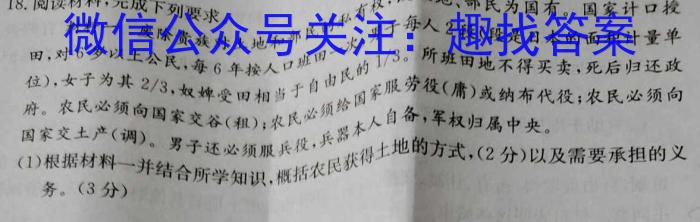 18.阅读材料,完成下列要求
废除贵族 地、部民为国有。国家计口授
田,对6岁以上公民,每6年按人口班田一次,男子每人2段(段是日本的面积计量单
位),女子为其2/3,奴婢受田相当于自由民的1/3。所班田地不得买卖,死后归还政
府。农民必须向国家交谷(租);农民必须给国家服劳役(庸)或纳布代役;农民必须向
国家交土产(调)。男子还必须服兵役,兵器本人自备,军权归属中央。
(1)根据材料一并结合所学知识,概括农民获得土地的方式,(2分)以及需要承担的义
务。(3分)
微信公众号关注:趣找答案